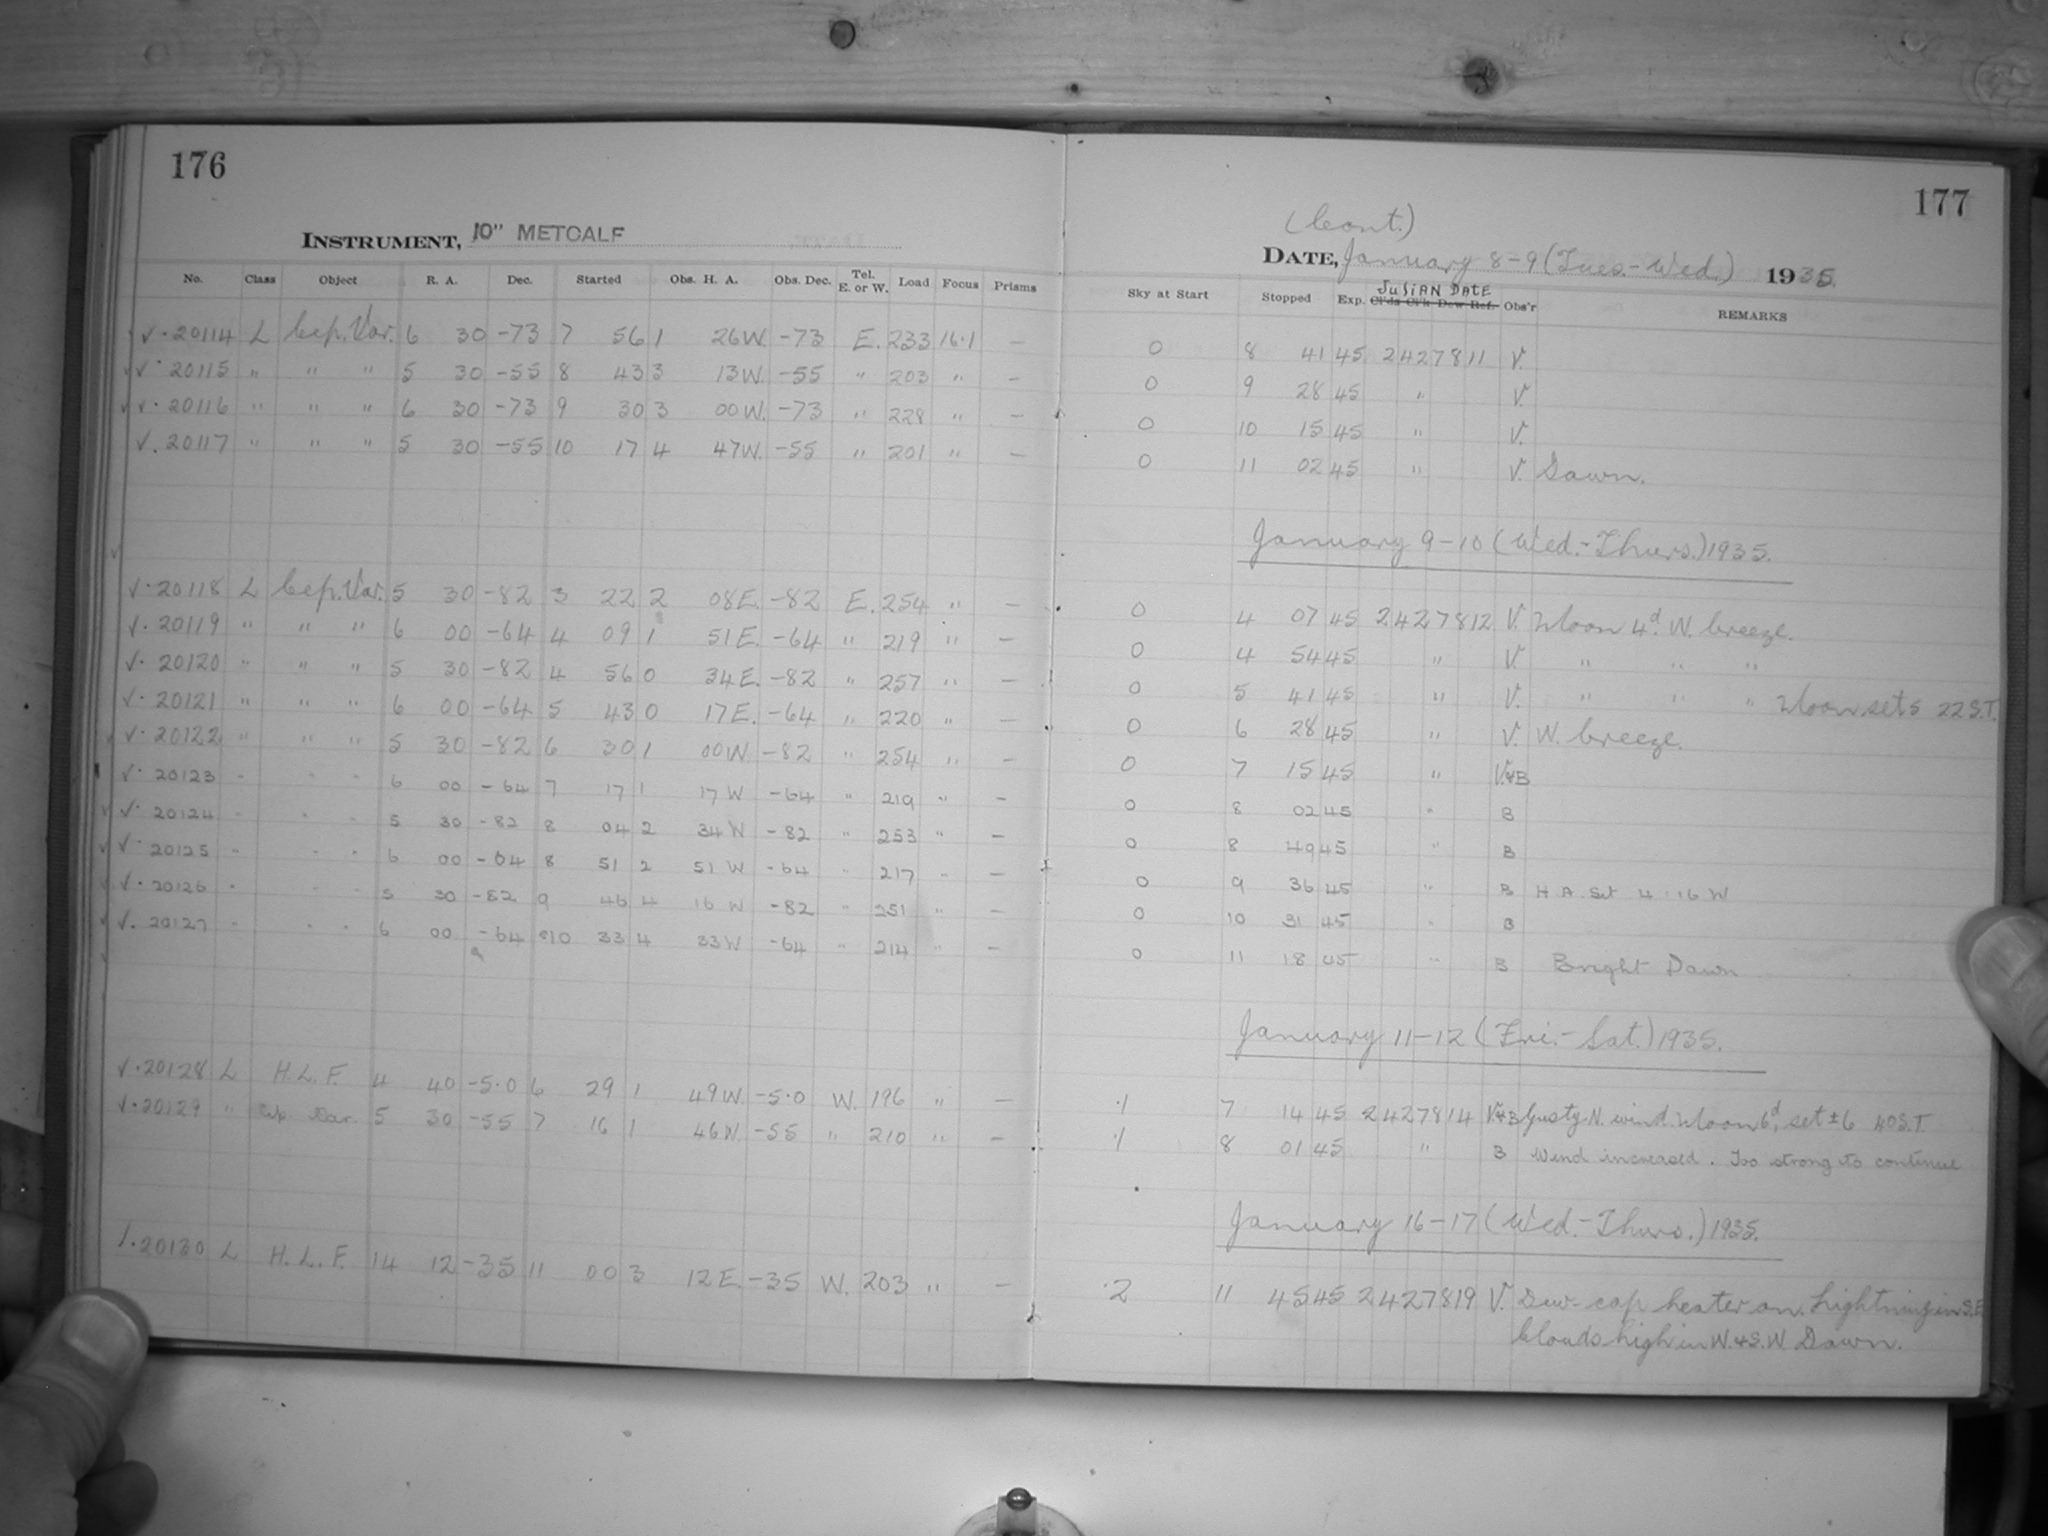 176
INSTRUMENT, 10" METCALF
No. Class Object R. A. Dec. Started Obs. H. A. Obs. Dec. Tel. E. or W. Load Focus Prisms
√·20114 L Cep. Var. 6 30 -73 7 56 1 26W. -73 E. 233 16·1 —
√·20115 " " " 5 30 -55 8 43 3 13W. -55 " 203 " —
√·20116 " " " 6 30 -73 9 30 3 00W. -73 " 228 " —
√.20117 " " " 5 30 -55 10 17 4 47W. -55 " 201 " —
√·20118 L Cep. Var. 5 30 -82 3 22 2 08E. -82 E. 254 " —
√.20119 " " " 6 00 -64 4 09 1 51E. -64 " 219 " —
√.20120 " " " 5 30 -82 4 56 0 34E. -82 " 257 " —
√.20121 " " " 6 00 -64 5 43 0 17E. -64 " 220 " —
√.20122 " " " 5 30 -82 6 30 1 00W -82 " 254 " —
√·20123 " " " 6 00 -64 7 17 1 17W -64 " 219 " —
√·20124 " " " 5 30 -82 8 04 2 34W -82 " 253 " —
√·20125 " " " 6 00 -64 8 51 2 51W -64 " 217 " —
√·20126 " " " 5 30 -82 9 46 4 16W -82 " 251 " —
√.20127 " " " 6 00 -64 10 33 4 33W -64 " 214 " —
√·20128 L H.L.F. 4 40 -5·0 6 29 1 49W. -5·0 W. 196 " —
√·20129 " Cep. Var. 5 30 -55 7 16 1 46W. -55 " 210 " —
/·20130 L H.L.F. 14 12 -35 11 00 3 12E. -35 W. 203 " —
177
(Cont.)
DATE, January 8-9 (Tues.-Wed.) 1935.
Sky at Start Stopped Exp. JULIAN DATE Cl'ds Cl'k Dew Ref. Obs'r REMARKS
0 8 41 45 2427811 V.
0 9 28 45 " V.
0 10 15 45 " V.
0 11 02 45 " V. Dawn.
January 9-10 (Wed.-Thurs.) 1935.
0 4 07 45 2427812 V. Moon 4d. W. breeze.
0 4 54 45 " V. " " "
0 5 41 45 " V. " " " Moon sets 22 S.T.
0 6 28 45 " V. W. breeze.
0 7 15 45 " V.+B
0 8 02 45 " B
0 8 49 45 " B
0 9 36 45 " B H A. Set 4:16 W
0 10 31 45 " B
0 11 18 45 " B Bright Dawn
January 11-12 (Fri.-Sat.) 1935.
·1 7 14 45 2427814 V.+B Gusty N. wind. Moon 6d, set ±6 40 S.T.
·1 8 01 45 " B Wind increased. Too strong to continue
January 16-17 (Wed.-Thurs.) 1935.
·2 11 45 45 2427819 V. Dew-cap heater on. Lightning in S.E.
Clouds high in W.+S.W. Dawn.